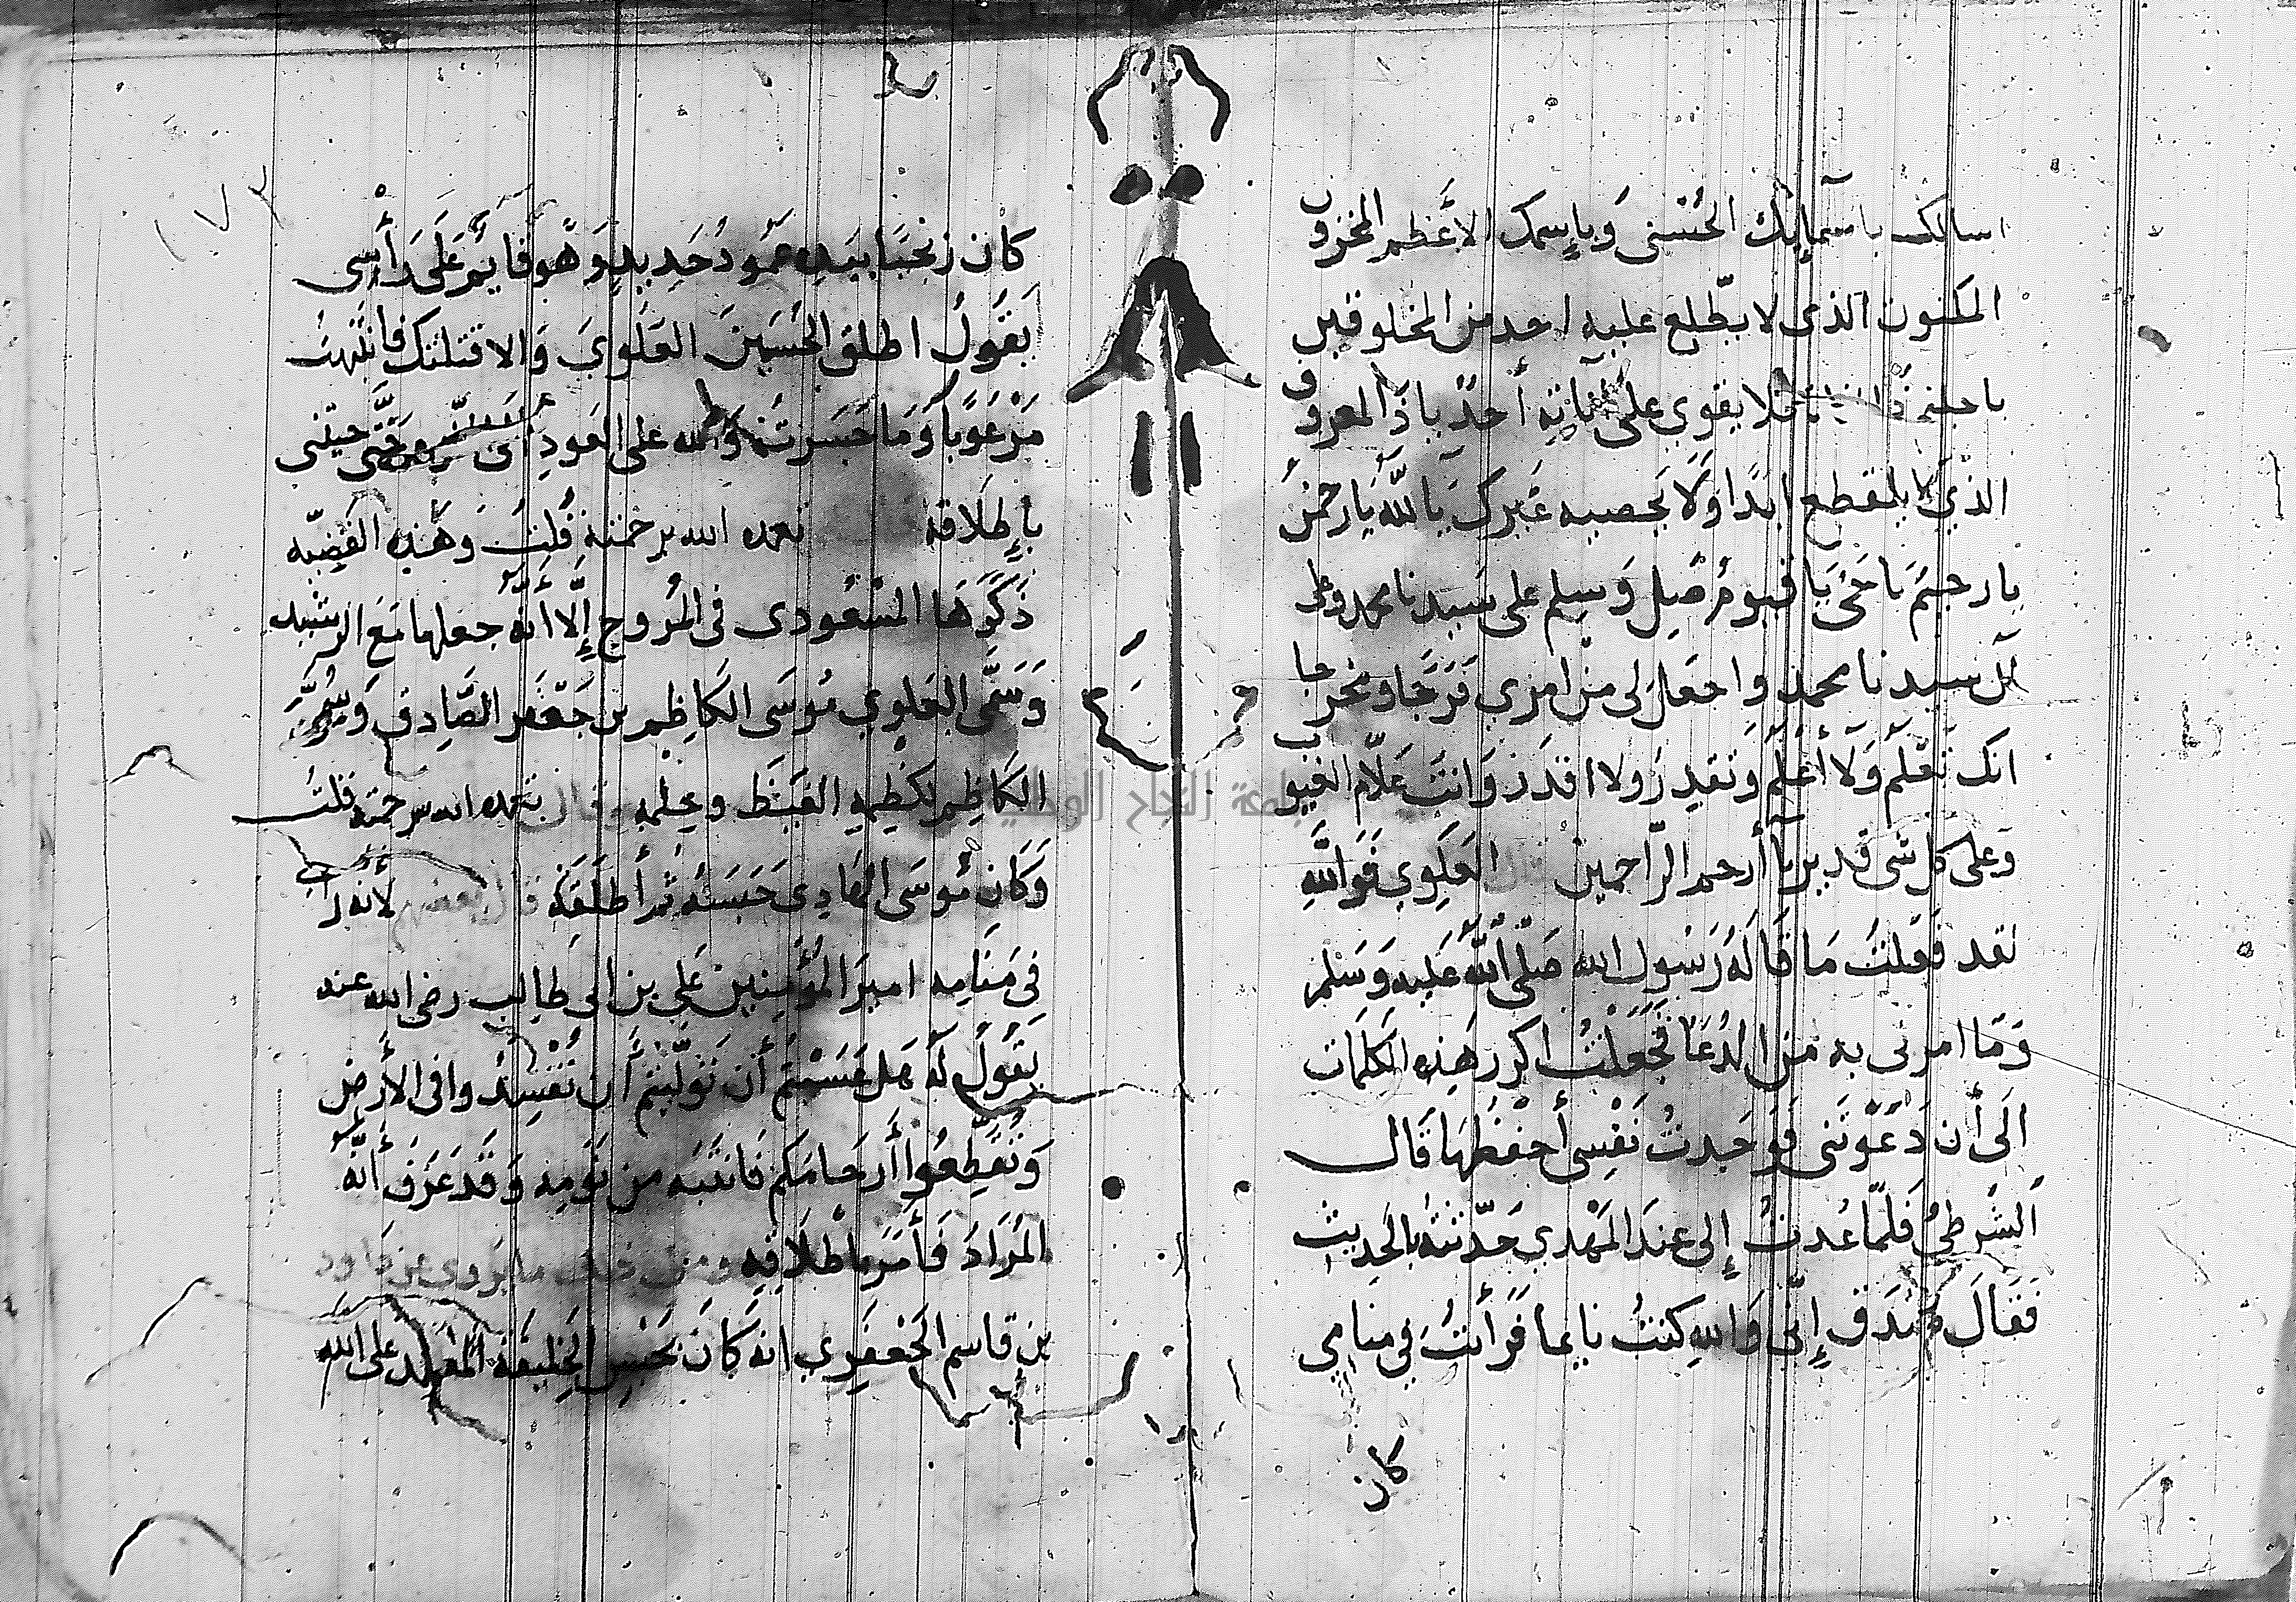 اسالك باسمآئك الحُسْنى وَبإسمك الأعْظم المخزون
المكنون الذى لا يطّلع عليه احد من المخلوقين
يا حليم لا يقوى على أناته أحدٌ يا ذا المعروف
الذي لا ينقطع ابدًا وَلَا يحصيه غيرك يَا اللّه يَا رَحمنُ
يا رحيم يَا حَىّ يَا قيومُ صَلِ وَسلم على سَيدنا محمد وعلى
آل سيدنا محمد واجعَل لى منْ امري فَرَجا ومخرجا
انك تعْلَم وَلَا أعْلَم وَتقدِرُ ولا اقدر وَانتَ علّام الغيوب
وَعلى كل شى قدير يآ أرحم الرّاحمين العَلَوِي فَوَاللّهِ
لقد فَعَلتُ مَا قَالهُ رَسُول الله صَلى اللّه عَليه وَسَلم
وَمَا امرنى به من الدُعَا فَجَعَلْتُ اكرر هَذِه الكلمَات
الَى أن دَعَوتَنى فَوَجَدتُ نَفْسِى أحْفظهَا قَال
الشُرطىُ فَلمّا عُدتُ إلى عند المَهْدي حَدّثتهُ بالحَديث
فَقالَ صَدَق إنّى وَاللهِ كنتُ نايما فَرَأيْتُ في منامي
كان
١٧٢
كان زنجيًا بيَدِه عمود حَديدٍ وَهُو قايم عَلَى رَأسى
يَقُولُ اطلق الحُسَينَ العَلَوىَ وَالا قتلتك فانتَبهتُ
مَرْعوبًا وَمَا جَسَرتُ وَالله على العَودِ حَتّى جيتنى
بإطلَاقه تغمده الله برحمته قُلتُ وَهَذِه القَضِيّه
ذَكَرَهَا المسْعُودى فى المُروج إلّا أنّهُ جعلها مَعَ الرشيد
وَسَمَّى العَلوِي مُوسَى الكاظِم بن جَعْفَر الصَّادِق وَسُمِّىَ
الكاظِم لكظمِهِ الغيْظ وحلمه تغمده الله برحمته قلتُ
وَكانَ مُوسَى الهَادِى حَبَسَهُ ثم أطلَقَهُ قال بعضهم لأنه رَاى
فى مَنَامِه اميرَ المؤمِنِين عَلى بن ابى طالب رضى الله عنه
يَقولُ له هَل عَسَيْتُم أن تَولّيتم أن تُفسِدُوا فى الأَرض
وَتُقَطّعُوا أَرحَامَكم فَانتبَه من نَومه وَقَد عَرَفَ أَنّه
المُرَادَ فَأمَرَ باطْلَاقِه ومن ذلك مَا يَروى عن داود
بن قاسم الجَعفَرِي انه كَانَ بحَبسِ الخَليفَة المُعتمد على الله